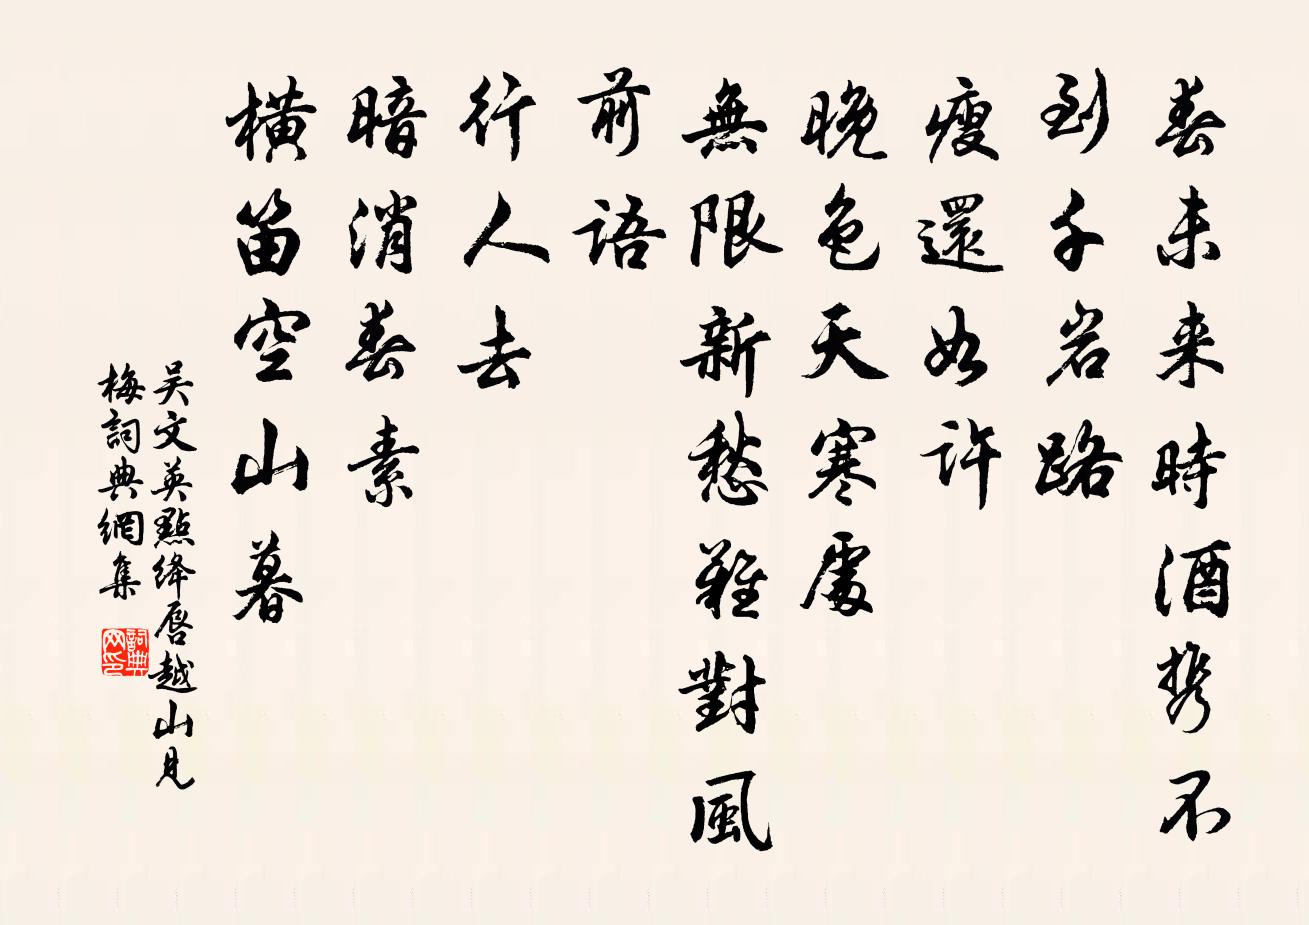 春未来時酒携不
到千岩路
瘦還如許
晚色天寒處
無限新愁難對風
前語
行人去
暗消春素
橫笛空山暮
吳文英點絳唇越山見
梅詞典網集
詞典网印